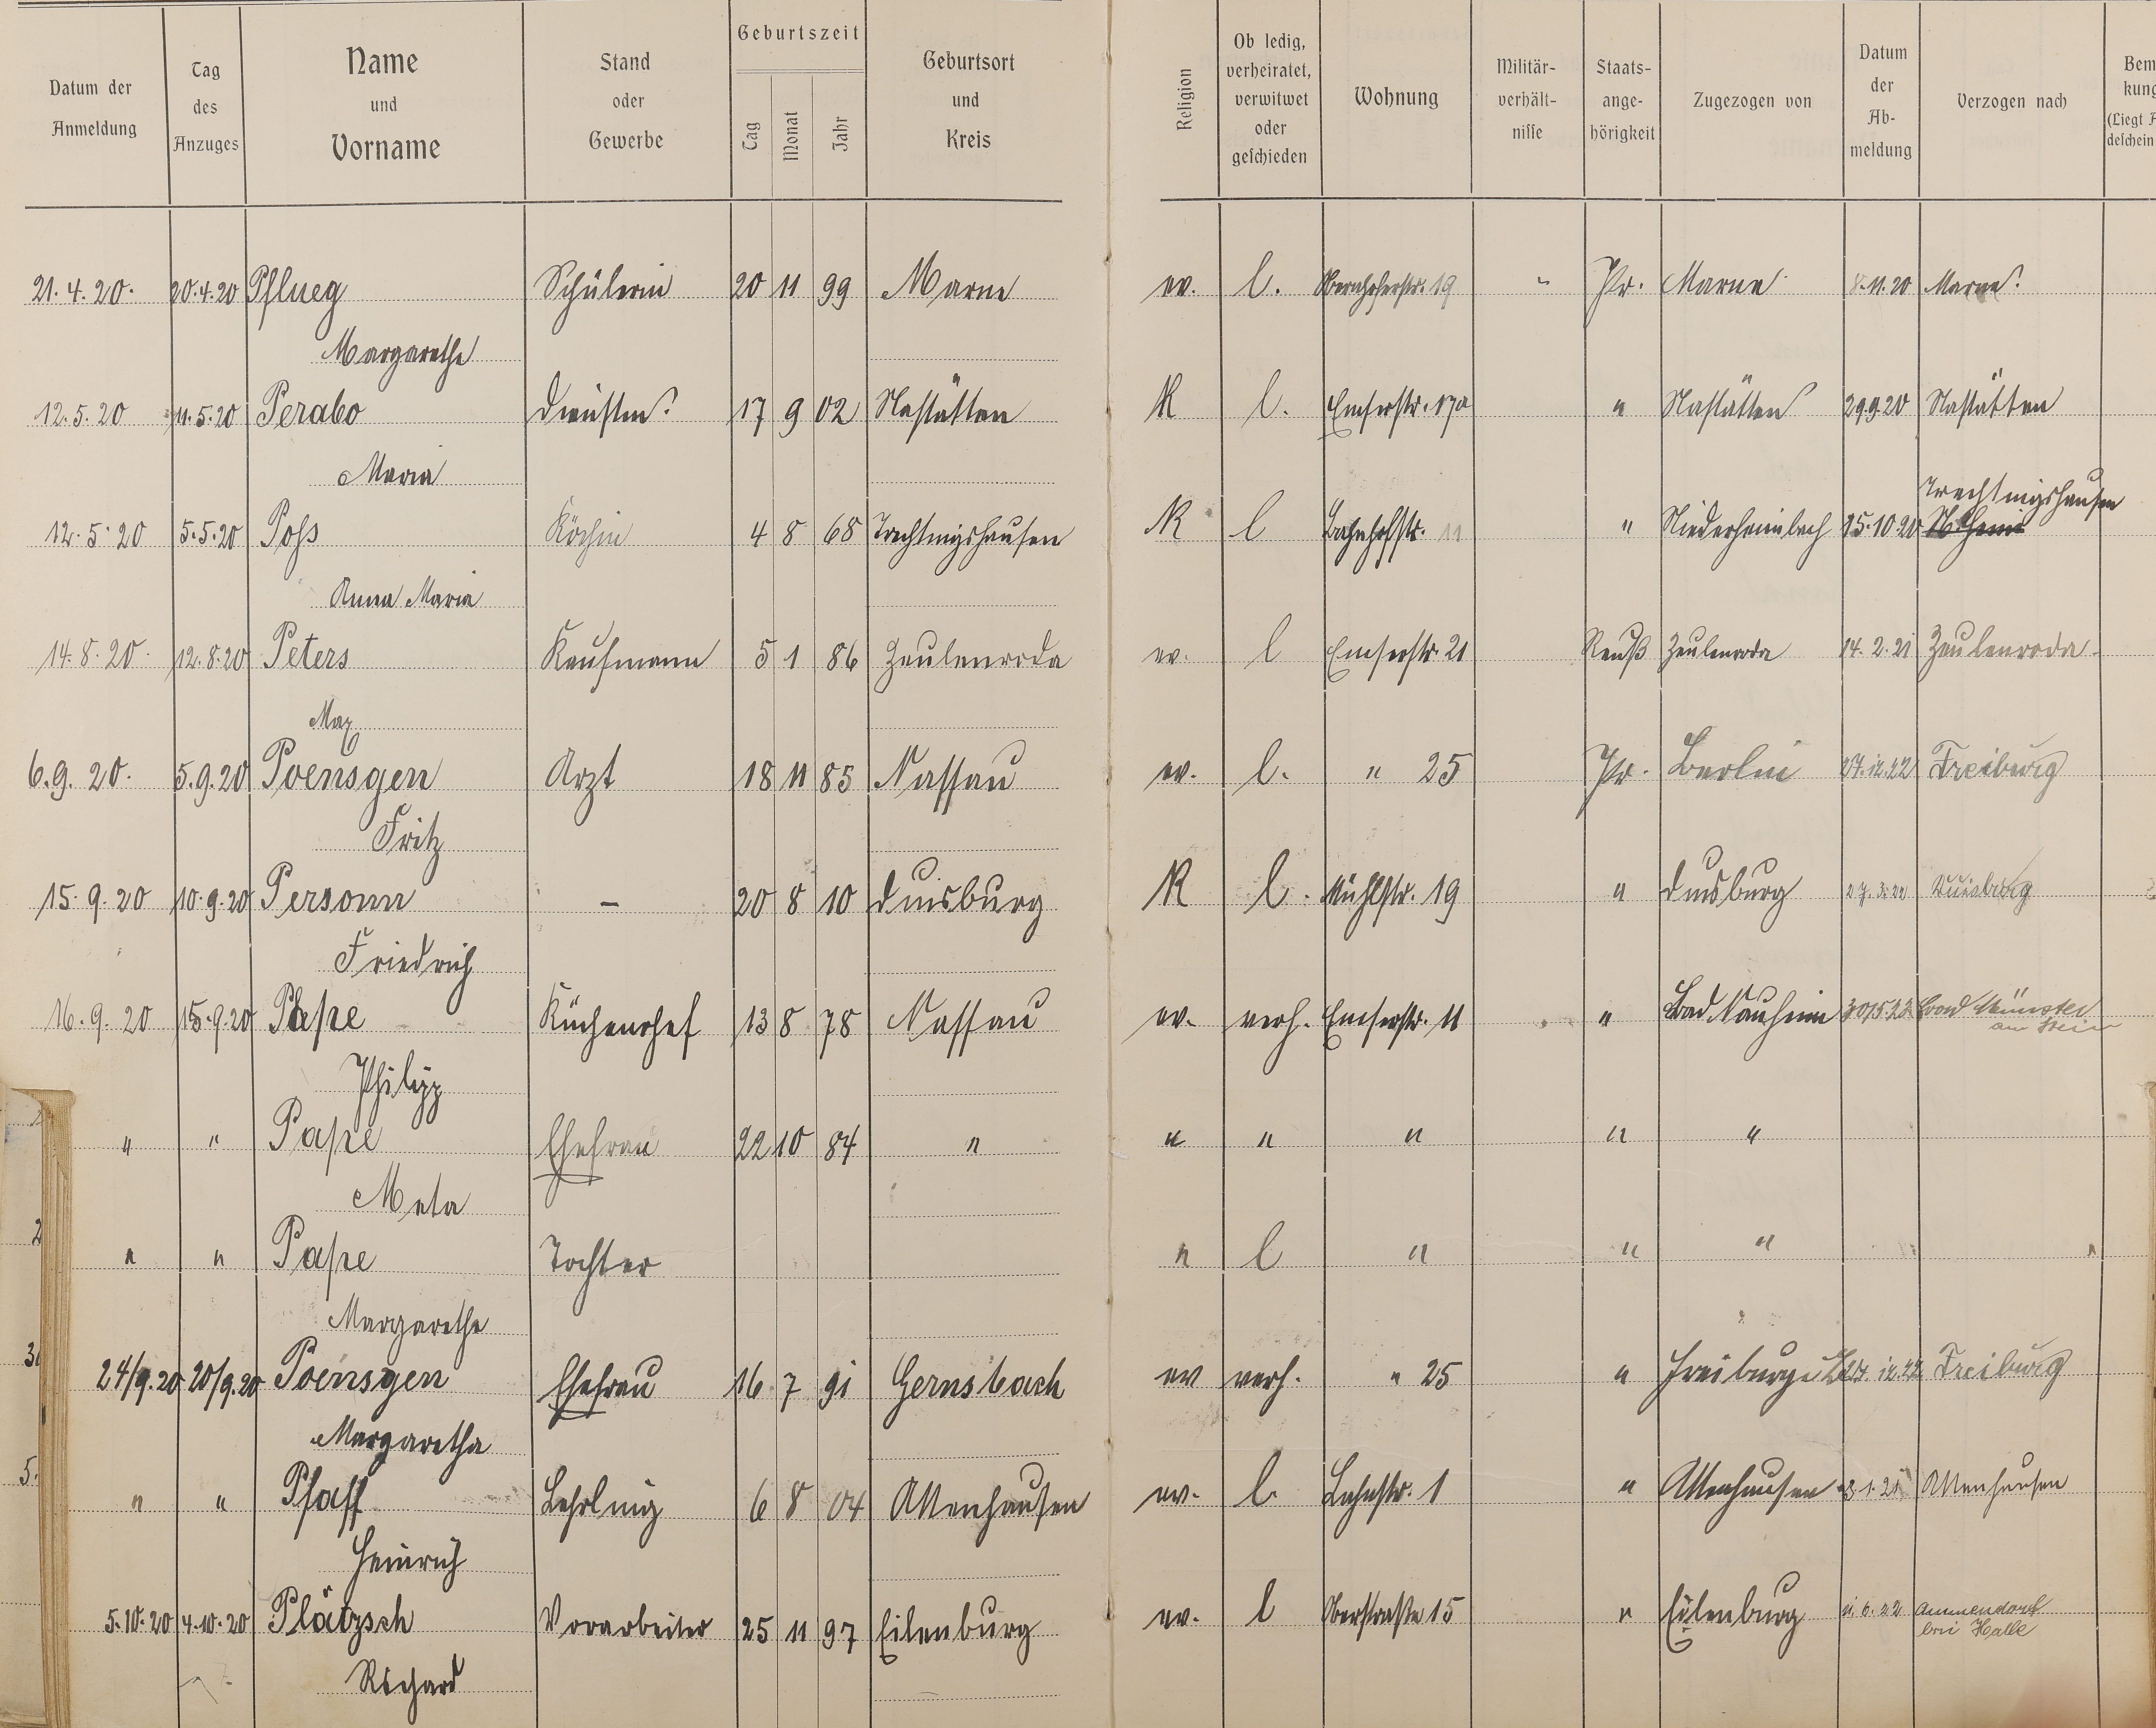 Datum der Anmeldung | Tag des Anzuges | Name und Vorname | Stand oder Gewerbe | Geburtszeit Tag Monat Jahr | Geburtsort und Kreis | Religion | Ob ledig, verheiratet, verwitwet oder geschieden | Wohnung | Militär-verhält-nisse | Staats-ange-hörigkeit | Zugezogen von | Datum der Ab-meldung | Verzogen nach | Bem kung (Liegt deschein
21.4.20. 20.4.20 Pflueg Schülerin 20 11 99 Marne ev. l. 19 " Pr. Marne 8.11.20 Marne.
Margarethe
12.5.20 11.5.20 Perabo Dienstm. 17 9 02 Nastätten K l. Emserstr. 17a " Nastätten 29.9.20 Nastätten
Maria
Trechtingshausen
12.5.20 5.5.20 Poß Köchin 4 8 68 Trechtingshausen K l Bahnhofstr. 11 " Niederheimbach 15.10.20
Anna Maria
14.8.20. 12.8.20 Peters Kaufmann 5 1 86 Zeulenroda ev. l Emserstr. 21 Reuß Zeulenroda 14.2.21 Zeulenroda
Max
6.9.20. 5.9.20 Poensgen Arzt 18 11 85 Nassau ev. l. " 25 Pr. Berlin 27.12.22 Freiburg
Fritz
15.9.20 10.9.20 Personn – 20 8 10 Duisburg K l. Mühlstr. 19 " Duisburg Duisburg
Friedrich
16.9.20 15.9.20 Pape Küchenchef 13 8 78 Nassau ev. verh. Emserstr. 11 " Bad Nauheim Bad Münster
am Stein
Philipp
" " Pape Ehefrau 22 10 84 " " " " " "
Meta
" " Pape Tochter " l " " "
Margarethe
24/9.20 20/9.20 Poensgen Ehefrau 16 7 91 Gernsbach ev verh. " 25 " Freiburg 27.12.22 Freiburg
Margaretha
" " Pfaff Lehrling 6 8 04 Attenhausen ev. l. Lahnstr. 1 " Attenhausen 3.1.21 Attenhausen
Heinrich
5.10.20 4.10.20 Plätzsch Vorarbeiter 25 11 97 Eilenburg ev. l Oberstraße 15 " Eilenburg 11.6.22 Ammendorf
bei Halle
Richard